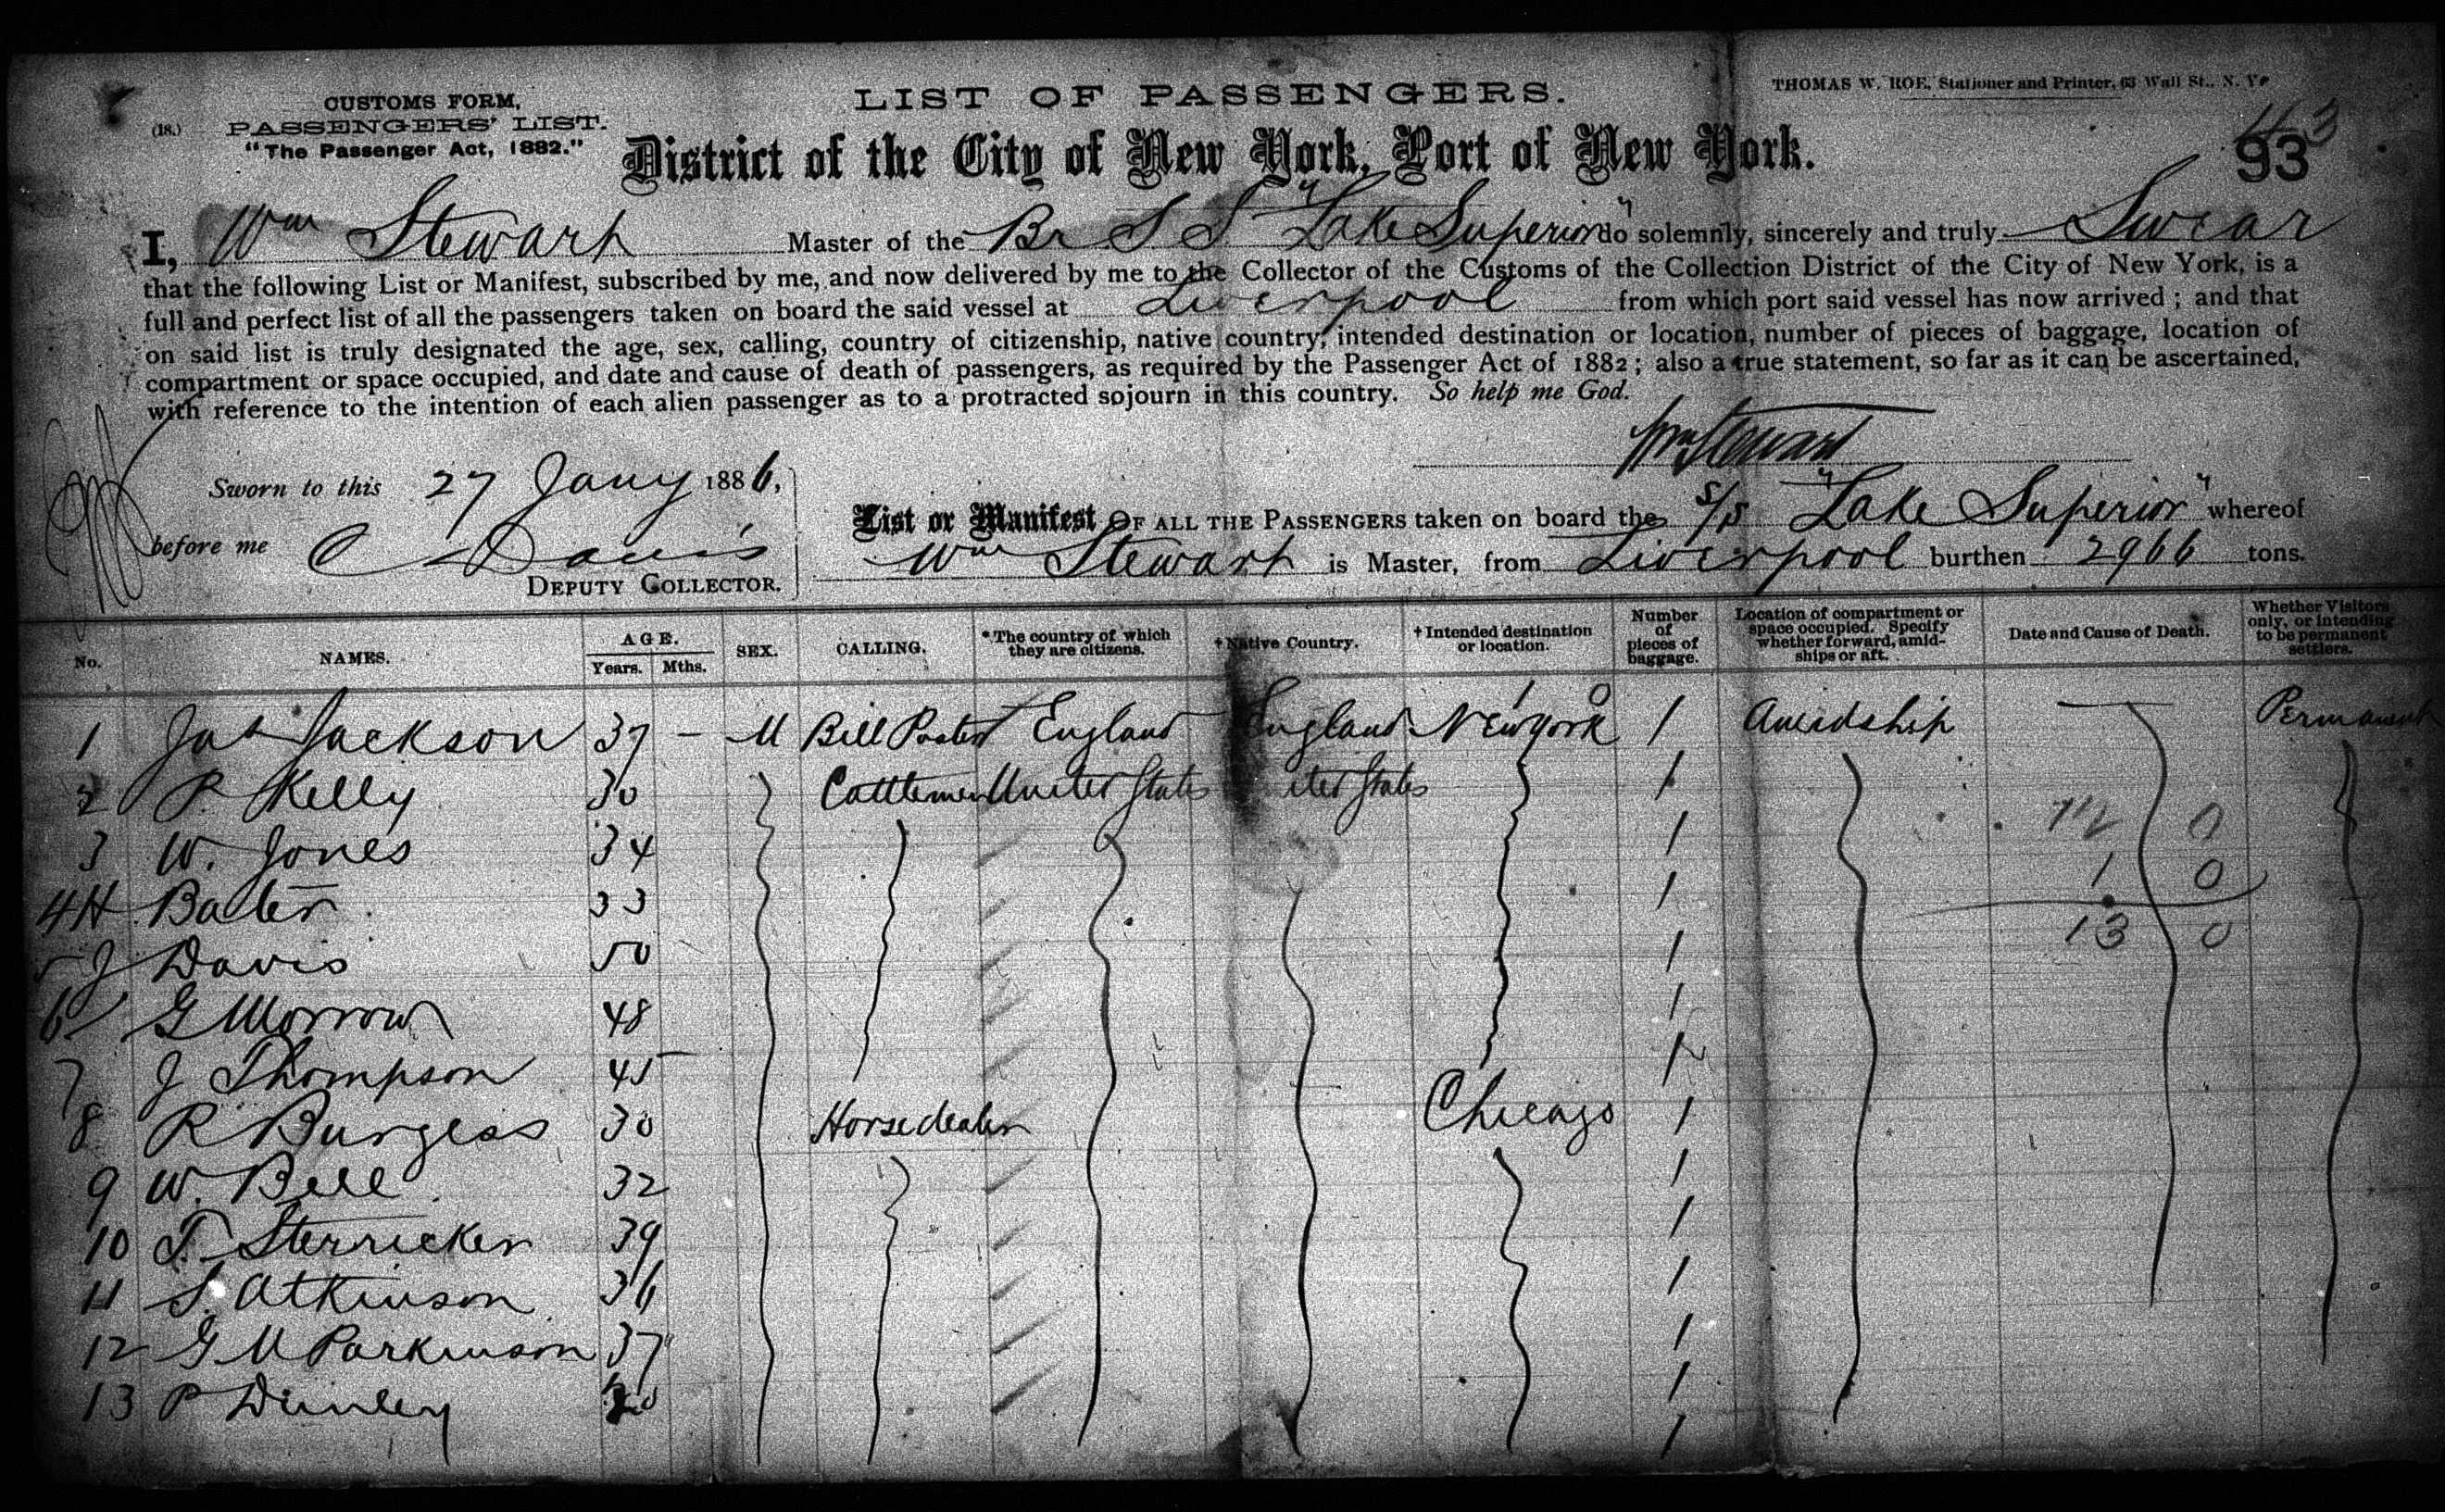 CUSTOMS FORM,
(18.) PASSENGERS' LIST.
"The Passenger Act, 1882."
LIST OF PASSENGERS.
THOMAS W. ROE, Stationer and Printer, 63 Wall St., N. Y.
District of the City of New York, Port of New York.
93
I, Wm Stewart Master of the Br S S "Lake Superior" do solemnly, sincerely and truly Swear
that the following List or Manifest, subscribed by me, and now delivered by me to the Collector of the Customs of the Collection District of the City of New York, is a
full and perfect list of all the passengers taken on board the said vessel at Liverpool from which port said vessel has now arrived; and that
on said list is truly designated the age, sex, calling, country of citizenship, native country, intended destination or location, number of pieces of baggage, location of
compartment or space occupied, and date and cause of death of passengers, as required by the Passenger Act of 1882; also a true statement, so far as it can be ascertained,
with reference to the intention of each alien passenger as to a protracted sojourn in this country. So help me God.
Wm Stewart
Sworn to this 27 Jany 1886,
before me C Davis
DEPUTY COLLECTOR.
List or Manifest OF ALL THE PASSENGERS taken on board the S/S "Lake Superior" whereof
Wm Stewart is Master, from Liverpool burthen 2966 tons.
No. NAMES. AGE. Years. Mths. SEX. CALLING. *The country of which they are citizens. †Native Country. †Intended destination or location. Number of pieces of baggage. Location of compartment or space occupied. Specify whether forward, amidships or aft. Date and Cause of Death. Whether Visitors only, or intending to be permanent settlers.
1 Jas Jackson 37 - M Bill Poster England England New York 1 Amidship — Permanent
2 P. Kelly 30 Cattlemen United States United States 1
3 W. Jones 34 1 12 0
4 H Bater 33 1 1 0
5 J Davis 50 1 13 0
6 G Morrow 48 1
7 J Thompson 45 1
8 R Burgess 30 Horse dealer Chicago 1
9 W. Bell 32 1
10 T. Sterricker 39 1
11 S. Atkinson 36 1
12 G M Parkinson 37 1
13 P 1
1